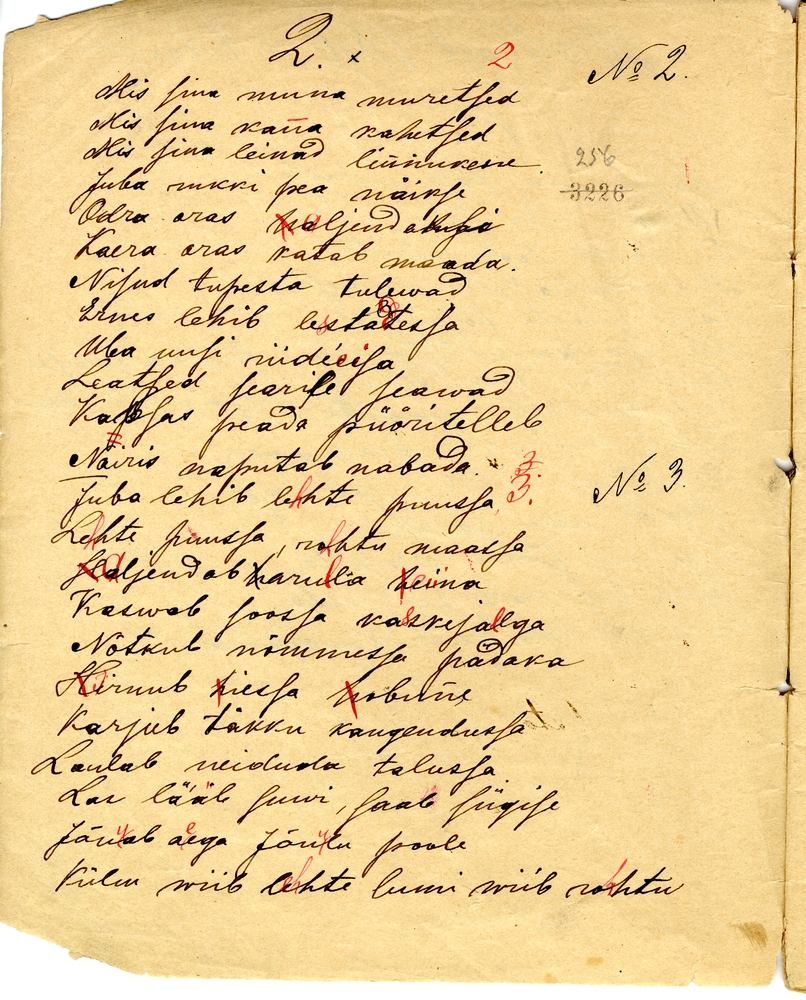 2. × 2 № 2.
Mis sina muna muretsed
Mis sina kana kahetsed
Mis sina leinad linnukene.
256
Juba rukki pea näikse
3226
Odra oras haljendakse
Kaera oras katab maada.
Nisud tupesta tulewad
Ernes lehib lestadessa
Uba uusi riideisa
Leatsed searile seawad
Kapsas peada pööritelleb
Nairis naputab nabada.
Juba lehib lehte puussa, 3. № 3.
Lehte puussa, rohtu maassa
Haljendab harula heina
Kaswab soossa kaskejalga
Notkub nõmmessa pädaka
Hirnub hiessa hobune
Karjub täkku kaugendussa
Laulab neiduda talussa
Las lääb suwi, saab sügise
Jõuab aega Jõulu poole
Külm wiib lehte lumi wiib rohtu